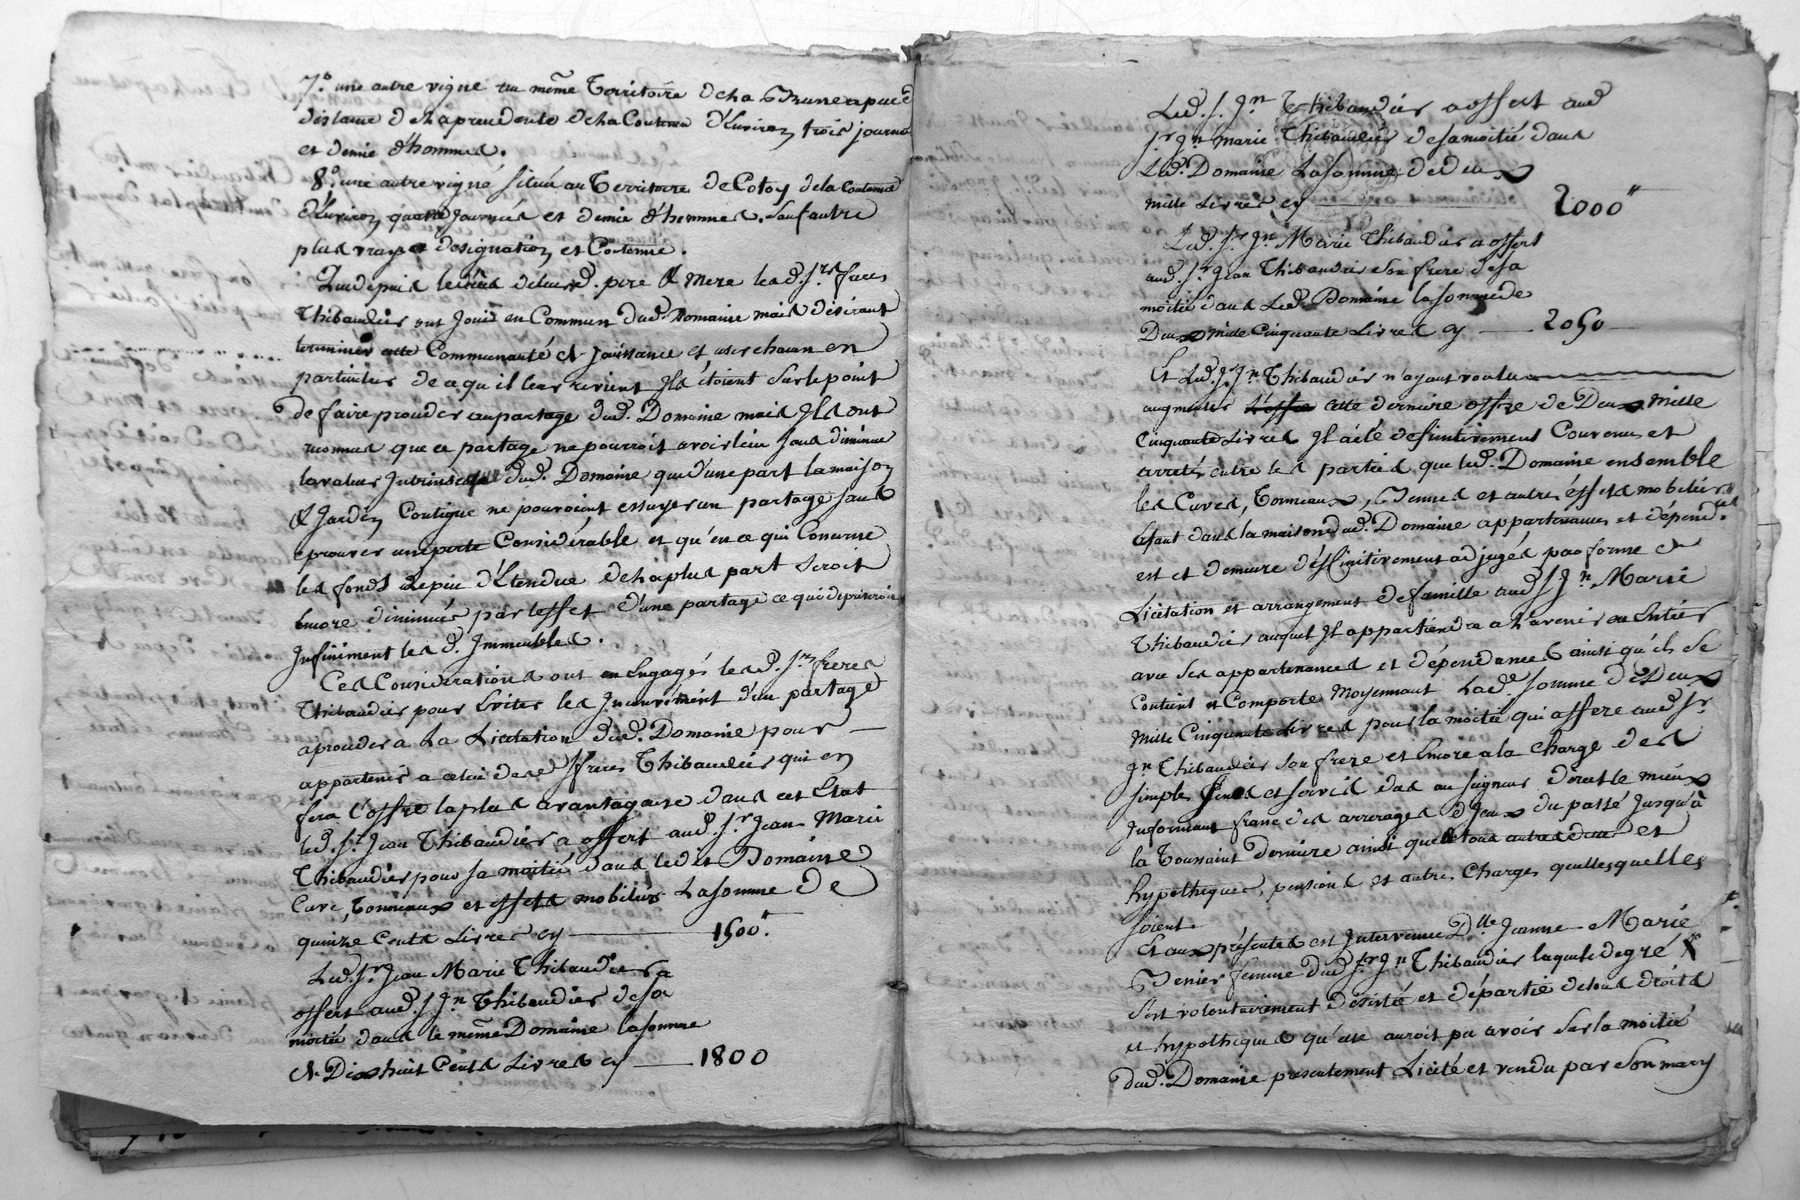 7.° une autre vigne au même Territoire de la Brune a peu de
distance de la precedente de la Contenue d'Environ trois journées
et demie d'hommes.
8.° une autre vigne située au Territoire de Cotoy de la Contenue
d'Environ quatre journées et demie d'hommes. Sauf autre
plus vraye designation et Contenue.
Que depuis le décès desd. pere & Mere lesd. Srs freres
Thibaudier ont Joui en Commun dud. Domaine mais désirant
terminer cette Communauté et Jouissance et user chacun en
particulier de ce qu'il leur revient Ils étoient sur le point
de faire proceder au partage dud. Domaine mais Ils ont
reconnus que ce partage ne pourroit avoir lieu sans diminuer
la valeur Intrinseque dud. Domaine que d'une part la maison
& Jardin Contigue ne pouvoient essuyer un partage sans
eprouver une perte Considérable et qu'en ce qui Concerne
les fonds Le peu d'Etendue de la plus part seroit
Encore diminué par l'effet d'une partage ce qui depriseroit
Infiniment les d. Immeubles.
Ces Considerations ont engagés lesd. Srs freres
Thibaudier pour Eviter les Inconvenient d'un partage
a proceder a La Licitation dud. Domaine pour
appartenir a celui desd freres Thibaudier qui en
fera l'offre la plus avantageuse dans cet Etat
led. Sr. Jean Thibaudier a offert aud. Sr. Jean Marie
Thibaudier pour sa moitié dans ledit Domaine
Cuve, Tonneaux et effets mobiliers La somme de
quinze Cents Livres cy 1500.tt
Led. Sr Jean Marie Thibaudier a
offert aud. S Jn. Thibaudier de sa
moitié dans le même Domaine la somme
de Dix huit Cents Livres cy 1800
Led. S. Jn Thibaudier a offert aud
Sr Jn Marie Thibaudier de sa moitié dans
led. Domaine La somme de deux
mille Livres cy 2000tt
Led. Sr Jn Marie Thibaudier a offert
aud. Sr Jean Thibaudier son frere de sa
moitié dans Led. Domaine la somme de
Deux mille Cinquante Livres cy 2050
Et Led. S. Jn Thibaudier n'ayant voulu
augmenter L'offre cette derniere offre de Deux Mille
Cinquante Livres Il a été definitivement Convenu et
arreté entre les parties que led. Domaine ensemble
les Cuves, Tonneaux, Bennes et autres éffets mobiliers
étant dans la maison dud. Domaine appartenances et dépendces
est et demeure définitivement adjugés par forme de
Licitation et arrangement de famille aud S Jn. Marie
Thibaudier auquel Il appartiendra a l'avenir en Entier
avec ses appartenances et dépendances ainsi qu'il se
Contient et Comporte Moyennant Lade somme de deux
Mille Cinquante Livres pour la moitié qui affere aud Sr
Jn Thibaudier son frere et Encore a la Charge des
simples Cens et servis dus au seigneur direct le mieux
Informant franc des arrerages d'Jceux du passé Jusqu'à
la Toussaint derniere ainsi que de tous autres dus et
hypothèques, pensions et autres Charges quelles quelles
soient.
Et aux présentes est Intervenue Dlle Jeanne-Marie
Benier femme dud Sr Jn Thibaudier laquelle de gré
s'est volontairement désistée et départie de tous droits
et hypotheques qu'elle auroit pu avoir sur la moitié
dud. Domaine presentement Licité et vendu par son mary